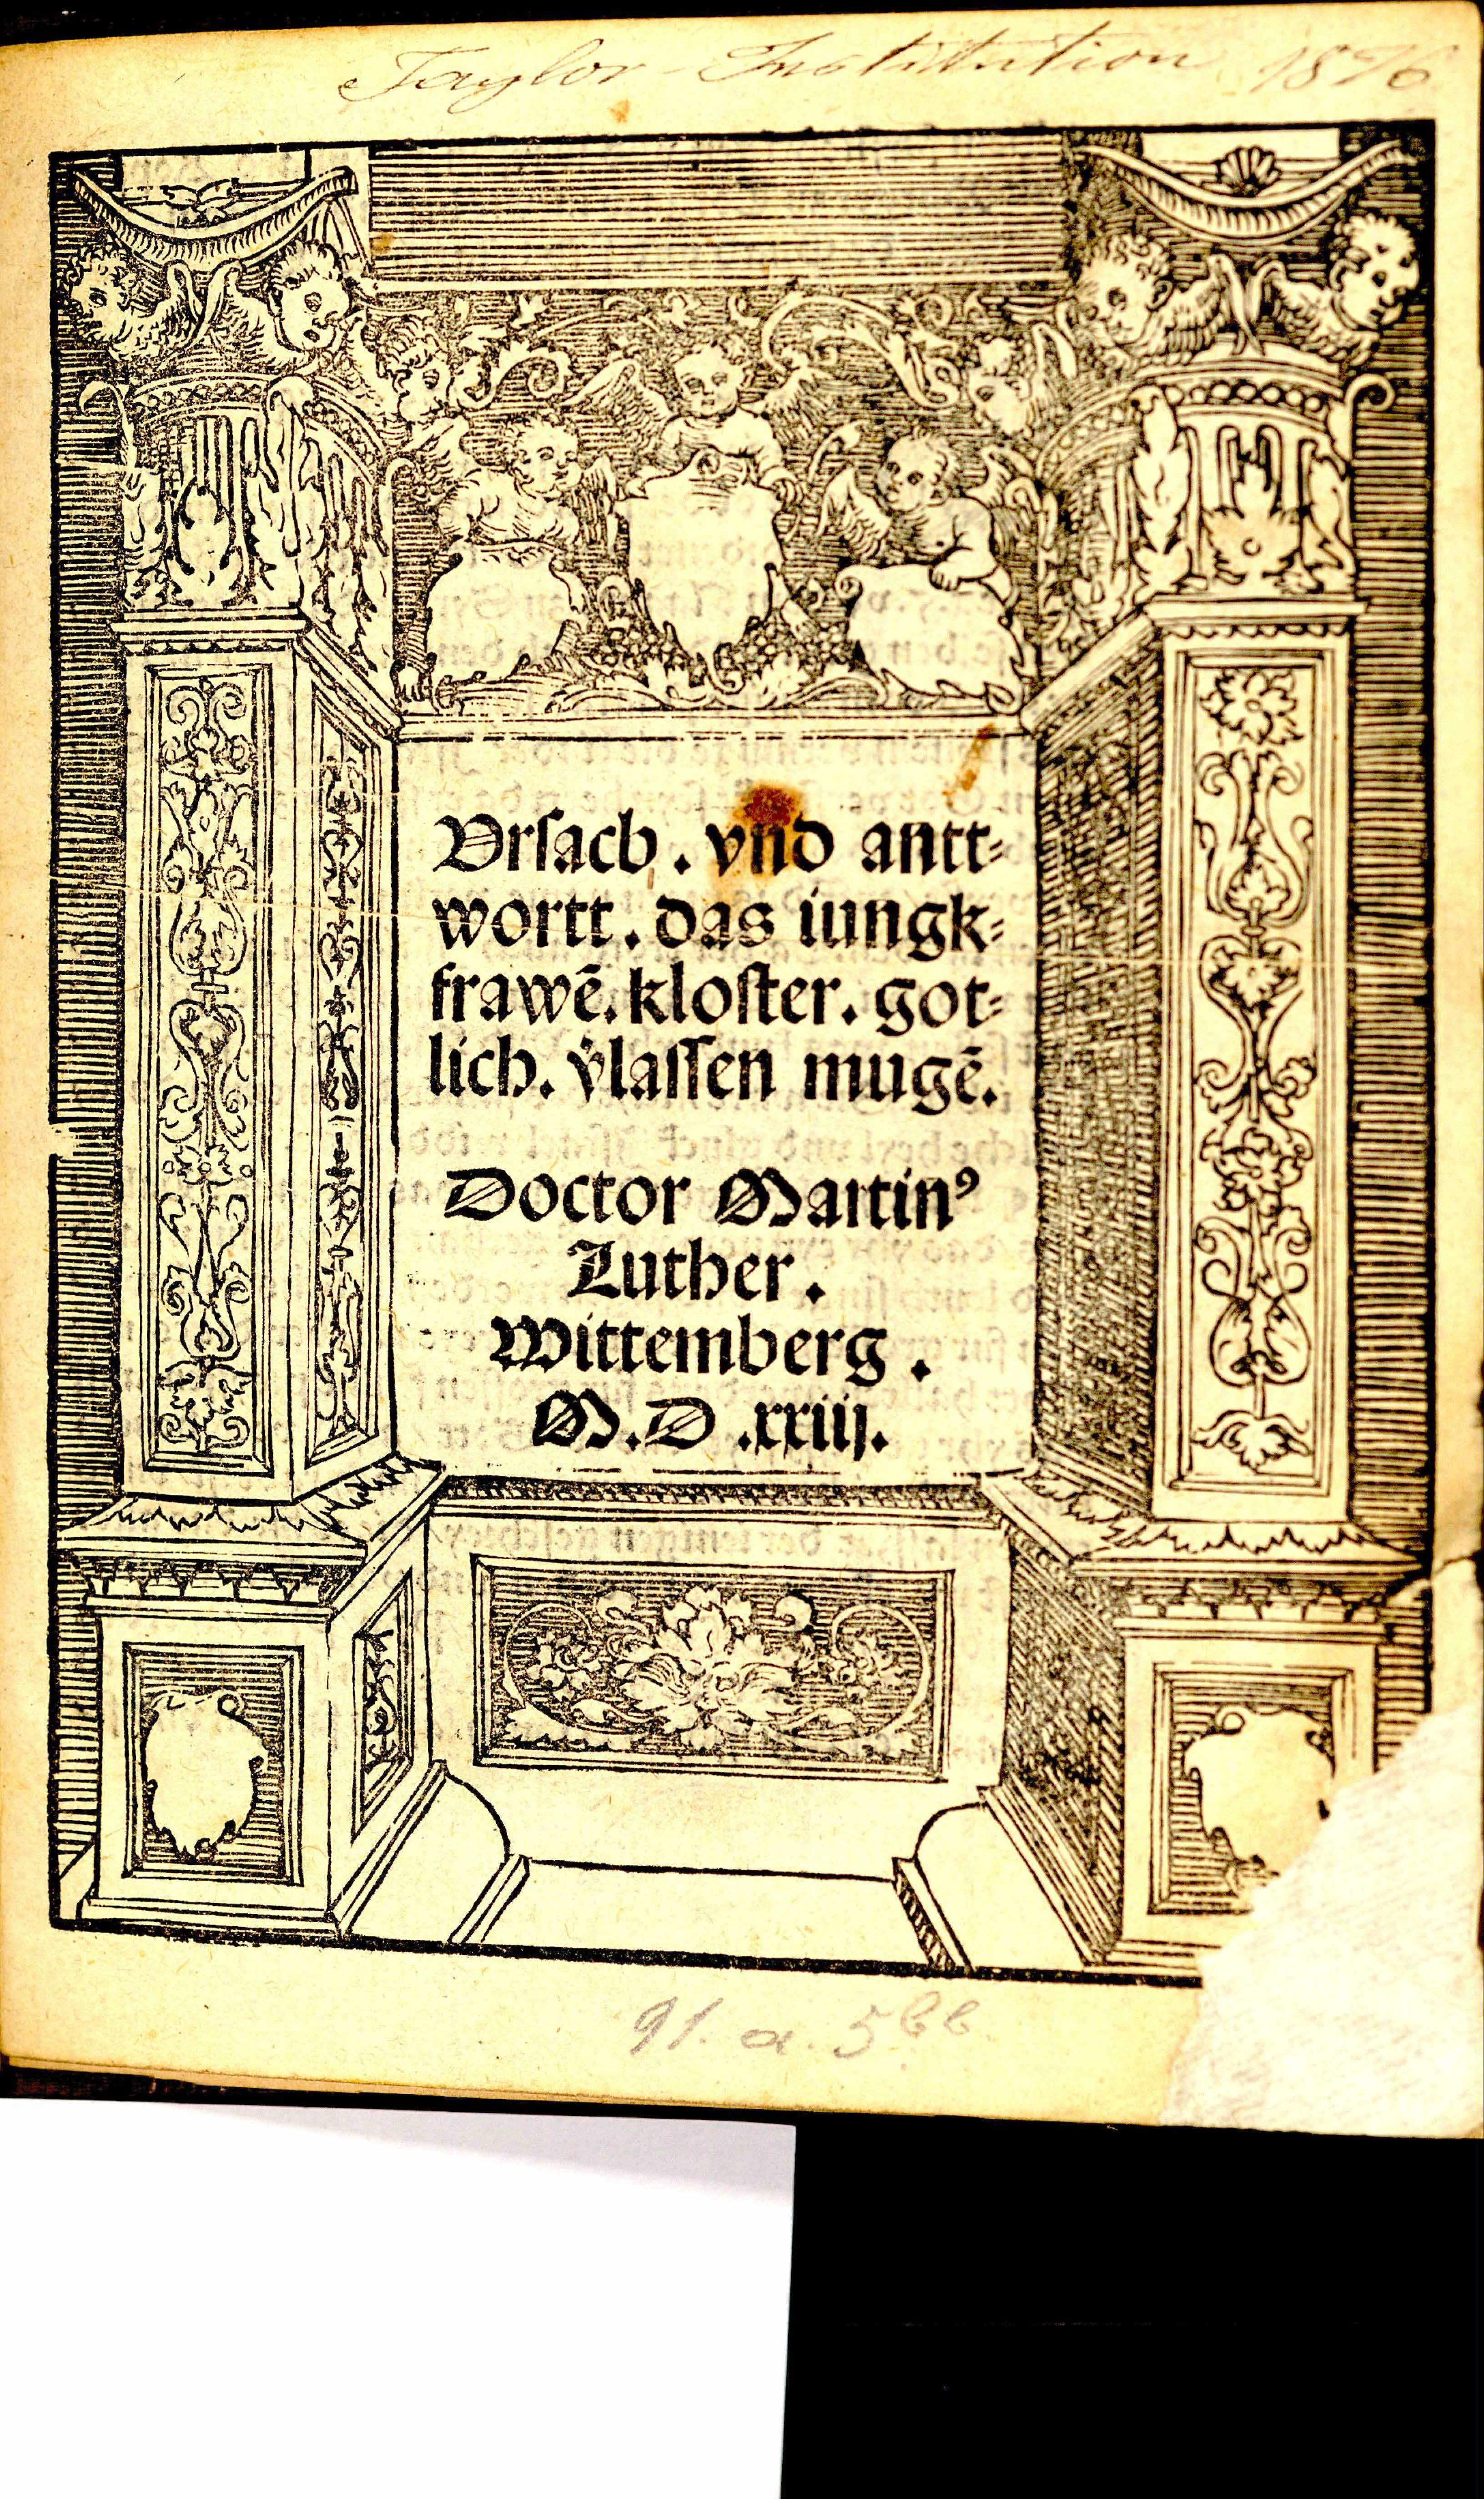 Taylor-Institution 1876
Vrſach . vnd antt⸗
wortt . das iungk⸗
frawē . kloſter . got⸗
lich . v̈laſſen mugē .
Doctor Martinꝰ
Luther .
Wittemberg .
M . D . xxiij .
91. a. 5 bb